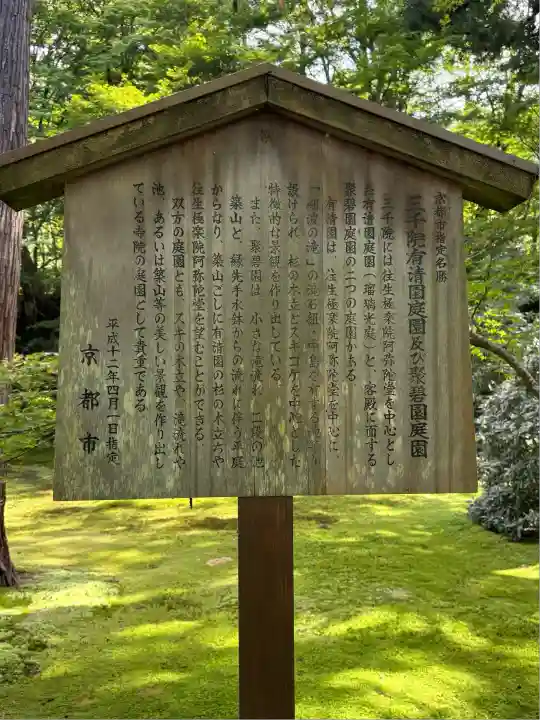 京都市指定名勝
三千院有清園庭園及び聚碧園庭園
三千院には往生極楽院阿弥陀堂を中心とし
た有清園庭園（瑠璃光庭）と、客殿に面する
聚碧園庭園の二つの庭園がある。
有清園は、往生極楽院阿弥陀堂を中心に、
「細波の滝」の滝石組、中島を有する
設けられ、杉の木立とスギゴケを中心とした
特徴的な景観を作り出している。
また、聚碧園は、小さな滝流れ、二段の池
からなり、築山ごしに有清園の杉の木立ちや
築山と、縁先手水鉢からの流れに伴う平庭
往生極楽院阿弥陀堂を望むことができる。
双方の庭園とも、スギの木立や、滝流れや
池、あるいは築山等の美しい景観を作り出し
ている寺院の庭園として貴重である。
平成十二年四月一日指定
京都市